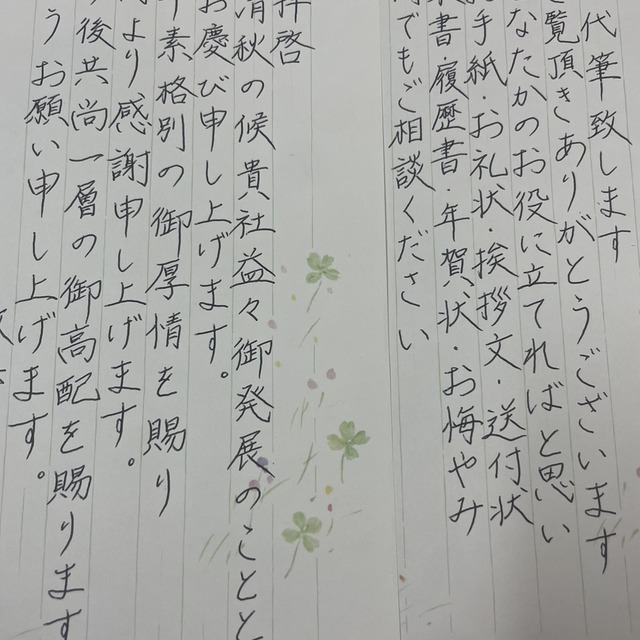 代筆致します
覧頂きありがとうございます
なたかのお役に立てればと思い
手紙・お礼状・挨拶文・送付状
書・履歴書・年賀状・お悔やみ
でもご相談ください
拝啓
清秋の候貴社益々御発展のことと
お慶び申し上げます。
素格別の御厚情を賜り
より感謝申し上げます。
後共尚一層の御高配を賜ります
うお願い申し上げます。